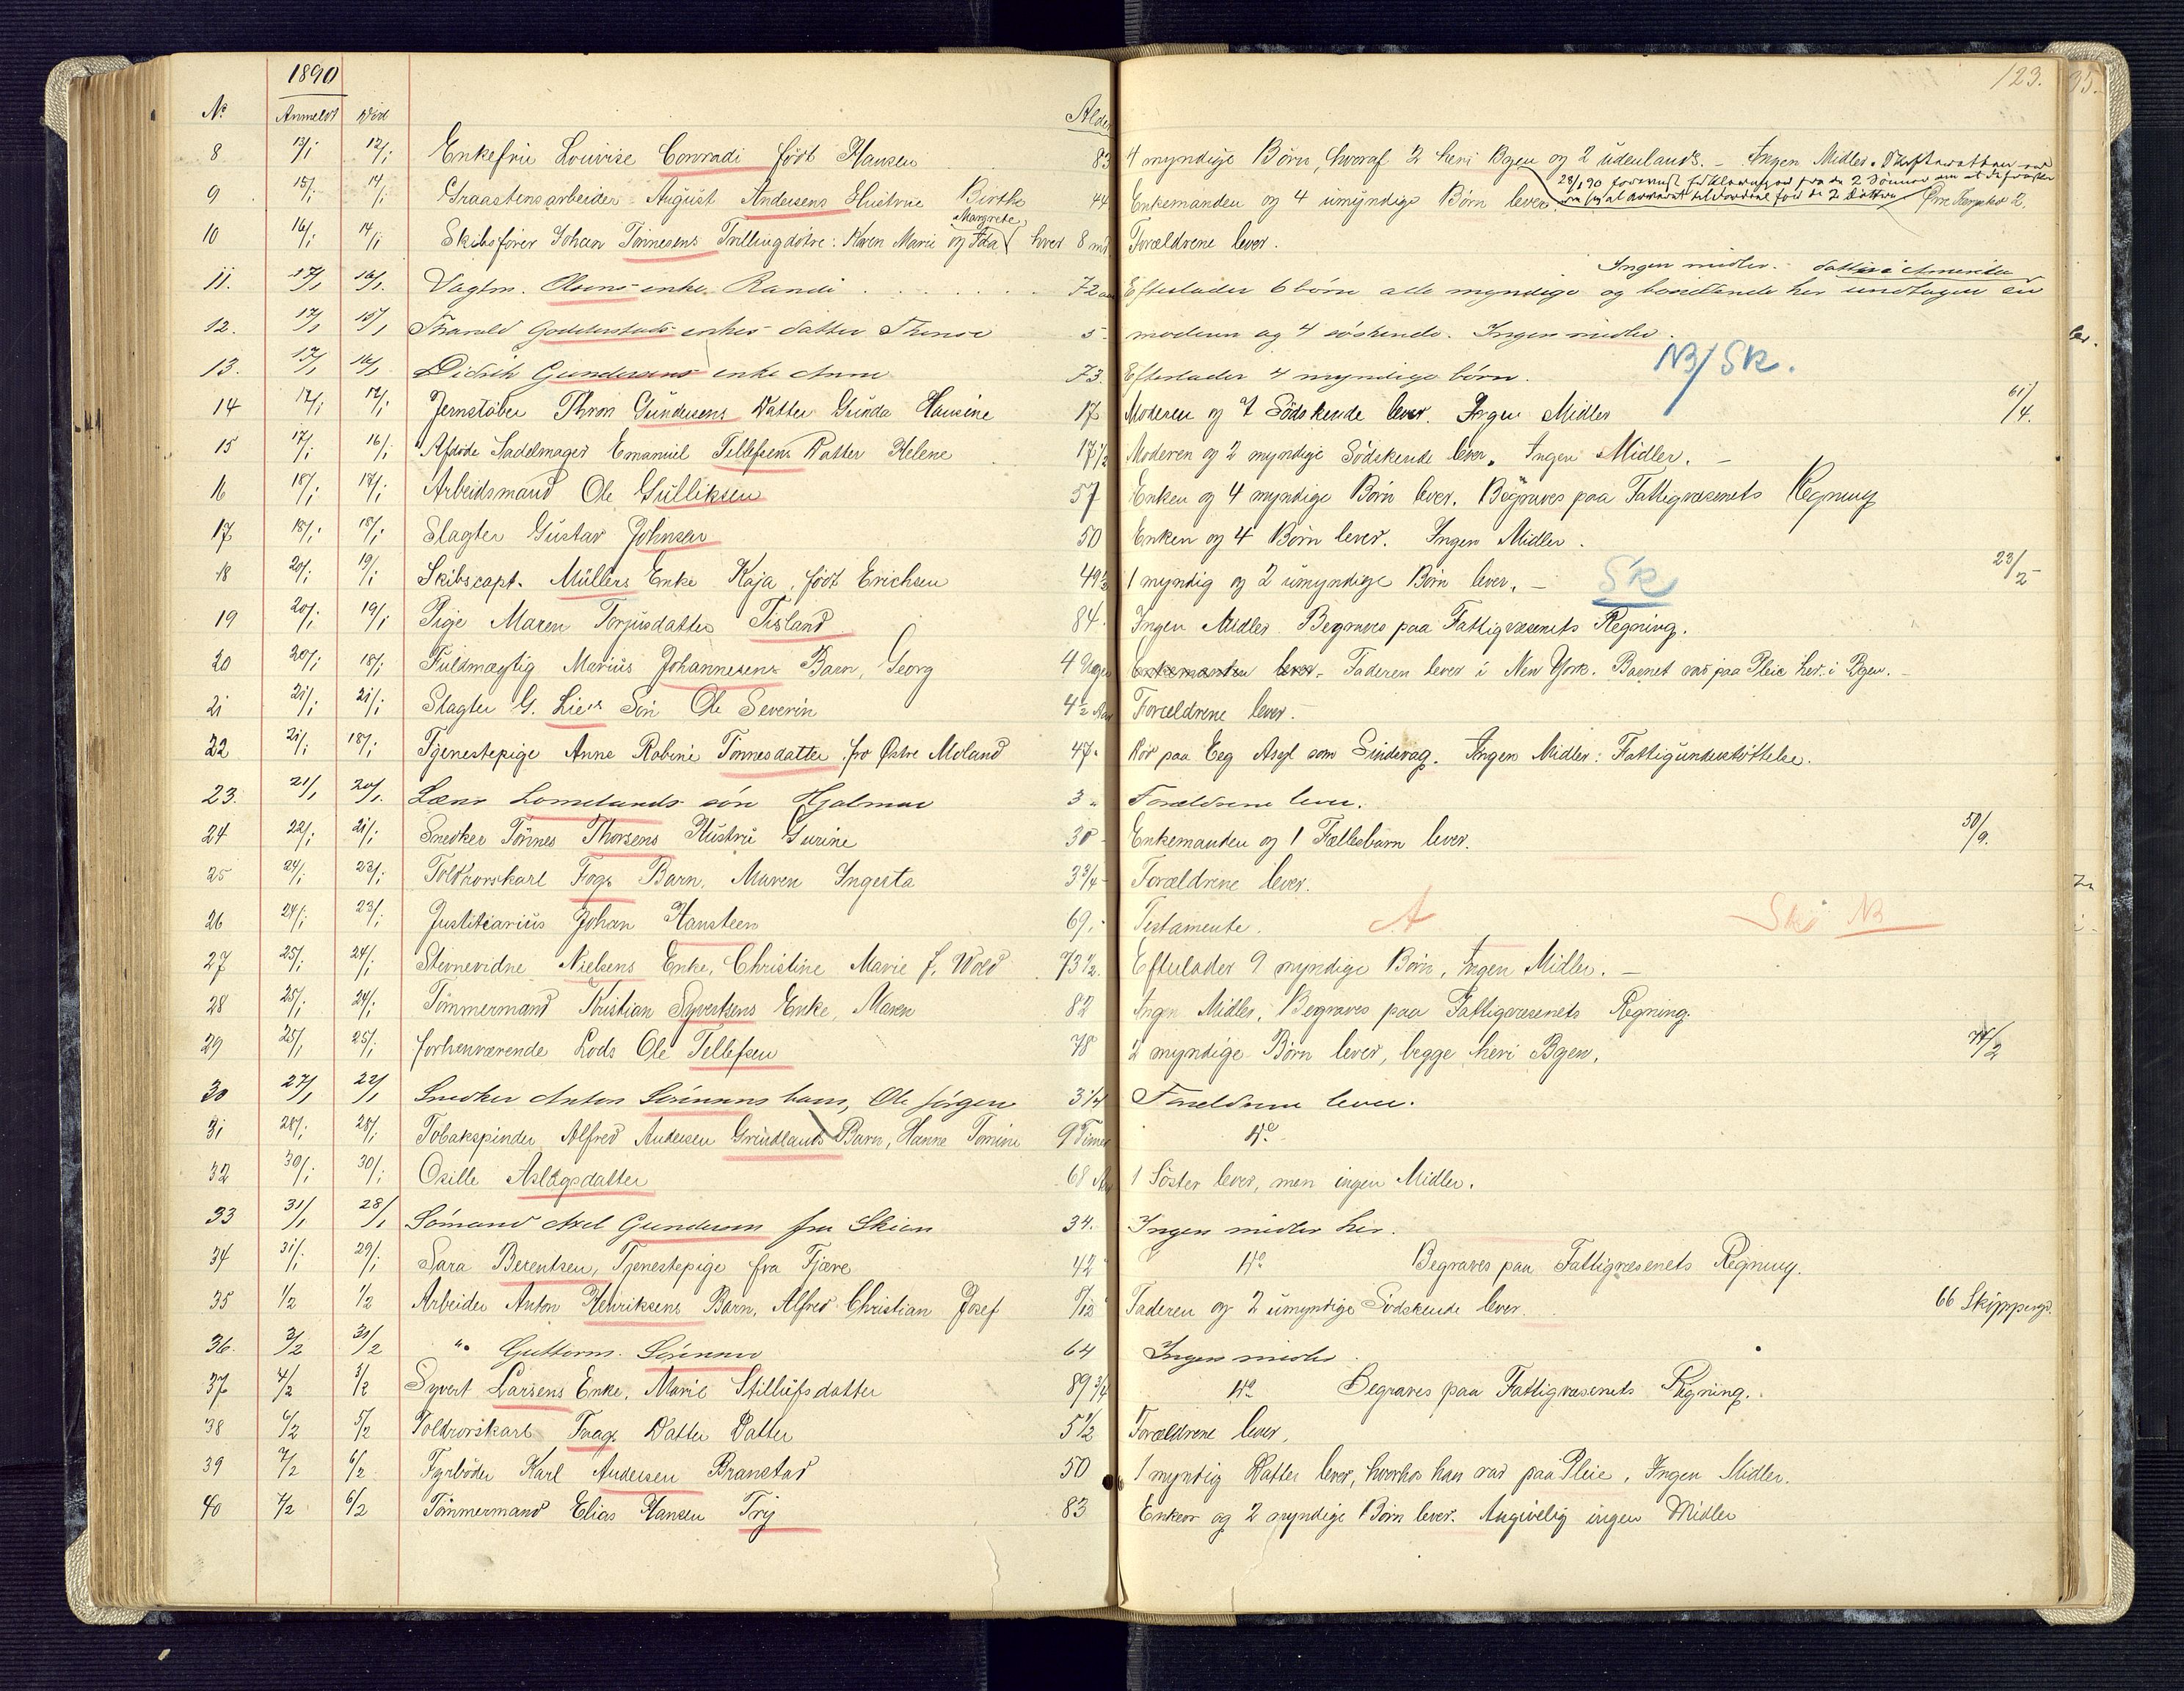 1890
123.
No Anmeldt Död Alder
8 13/1 12/1 Enkefru Louvise Conradi född Hansen 83 4 myndige Börn, hvoraf 2 heri Byen og 2 udenlands. - Ingen Midler.
28/1 90 fra de 2 Sönner
9 15/1 14/1 Graastensarbeider August Andersens Hustrue Birthe 44 Enkemanden og 4 umyndige Börn lever.
Margrethe
10 16/1 14/1 Skibsförer Johan Tönnesens Trillingdötre: Karen Marie og Ida hver 8 md Forældrene lever.
Ingen midler. datter i Amerika
11. 17/1 16/1. Vagtm. Olsens enke Randi 72 aar Efterlader 6 börn alle myndige og boende her undtagen en
12. 17/1 15/1 Tharald Godderstads enkes datter Thinse 5 - moderen og 4 söskende. Ingen midler.
13. 17/1 16/1 Didrik Gundersens enke Anne 73. Efterlader 4 myndige börn. NB/ SK.
14 17/1 17/1 Jernstöber Thron Gundersens Datter Gunda Hansine 17 Moderen og 7 Södskende lever. Ingen Midler 61/4.
15 17/1 16/1 Afdöde Sadelmager Emanuel Tellefsens Datter Helene 17 1/2 Moderen og 2 myndige Södskende lever. Ingen Midler. -
16 18/1 17/1 Arbeidsmand Ole Gulliksen 57 Enken og 4 myndige Börn lever. Begraves paa Fattigvæsenets Regning
17 18/1 18/1 Slagter Gustav Johnsen 50 Enken og 4 Börn lever. Ingen Midler.
18 20/1 19/1 Skibscapt. Müllers Enke Kaja, född Erichsen 49 1/2 1 myndig og 2 umyndige Börn lever. - SK 23/2
19 20/1 19/1 Pige Maren Torjusdatter Tisland 84. Ingen Midler. Begraves paa Fattigvæsenets Regning.
20 20/1 18/1 Fuldmægtig Marius Johannesens Barn, Georg 4 Dage Enkemanden lever - Faderen lever i New York. Barnet var paa Pleie her i Byen. -
21 21/1 21/1 Slagter G. Lie's Sön Ole Severin 4 1/2 Aar Forældrene lever. -
22 21/1 18/1 Tjenestepige Anne Robine Tönnesdatter, fra Østre Moland 47. Död paa Eeg Asyl som Sindsvag. Ingen Midler: Fattigunderstöttelse.
23. 21/1 20/1. Læns Lomelands sön Hjalmar 3 " Forældrene lever.
24 22/1 21/1 Snedker Tönnes Thorsens Hustru Gurine 30 - Enkemanden og 1 Fællesbarn lever. 50/9.
25 24/1 23/1 Toldrorskarl Fogs Barn, Maren Ingerta 3 3/4 - Forældrene lever.
26 24/1 23/1 Justitiarius Johan Hansteen 69. - Testamente. A Sk NB
27 25/1 24/1 Stevnevidne Nielsens Enke, Christine Marie f. Wold 73 1/2. Efterlader 9 myndige Börn, Ingen Midler. -
28 25/1 24/1 Tömmermand Kristian Syvertsens Enke, Maren 82 Ingen Midler. Begraves paa Fattigvæsenets Regning.
29 25/1 25/1 forhenværende Lods Ole Tellefsen 78 2 myndige Börn lever, begge heri Byen. 77/2
30 27/1 22/1 Snedker Anton Sörensens barn, Ole Jörgen 3 1/4 Forældrene lever.
31 28/1 28/1 Tobakspinder Alfred Andersen Grindlands Barn, Hanne Tomine 9 Timer Do
32 30/1 30/1 Osille Aslagsdatter 68 Aar 1 Söster lever, men ingen Midler.
33 31/1 28/1 Sömand Axel Gundersen fra Skien 34. Ingen midler her.
34 31/1 29/1 Sara Berentsen, Tjenestepige fra Fjære 42 Do Begraves paa Fattigvæsenets Regning.
35 1/2 1/2 Arbeider Anton Henriksens Barn, Alfred Christian Josef 7/12 Faderen og 2 umyndige Södskende lever. 66 Skippergd.
36. 3/2 31/2 " Guttorm Sörensen 64 Ingen midler.
37 4/2 3/2 Syvert Larsens Enke, Marie Stillufsdatter 89 3/4 Do Begraves paa Fattigvæsenets Regning.
38 6/2 5/2 Toldrorskarl Fogs Datter Datter 5 1/2 Forældrene lever.
39 7/2 6/2 Fyrböder Karl Andersen Branstad 50 1 myndig Datter lever, hvorhos han var paa Pleie. Ingen Midler.
40 7/2 6/2 Tömmermand Elias Hansen Try 83 Enken og 2 myndige Börn lever. Angivelig ingen Midler